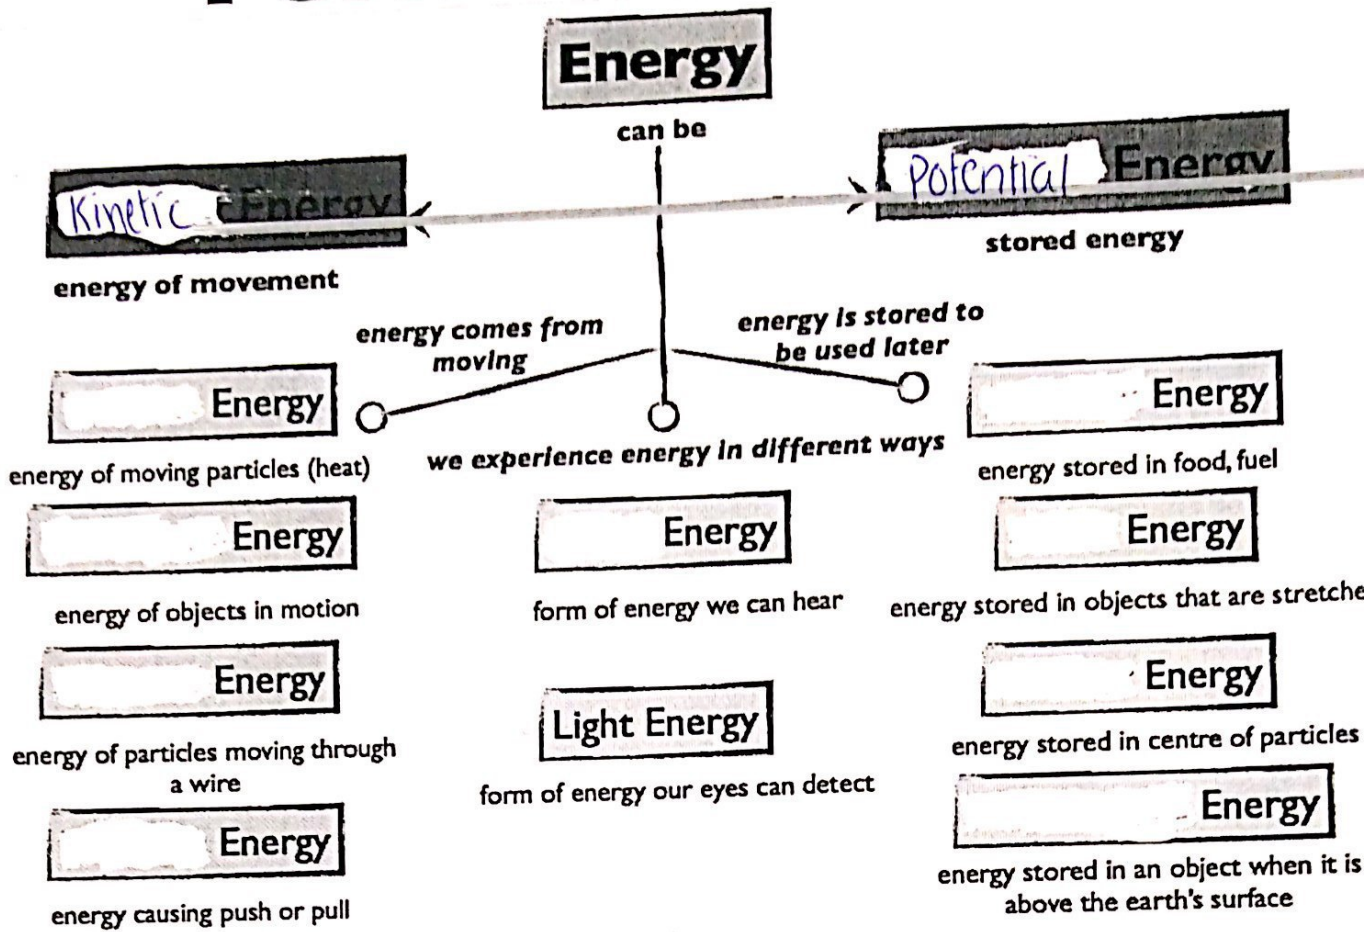 Energy
can be
Kinetic Energy
energy of movement
Potential Energy
stored energy
energy comes from
moving
energy is stored to
be used later
we experience energy in different ways
Energy
energy of moving particles (heat)
Energy
energy of objects in motion
Energy
energy of particles moving through
a wire
Energy
energy causing push or pull
Energy
form of energy we can hear
Light Energy
form of energy our eyes can detect
Energy
energy stored in food, fuel
Energy
energy stored in objects that are stretche
Energy
energy stored in centre of particles
Energy
energy stored in an object when it is
above the earth's surface